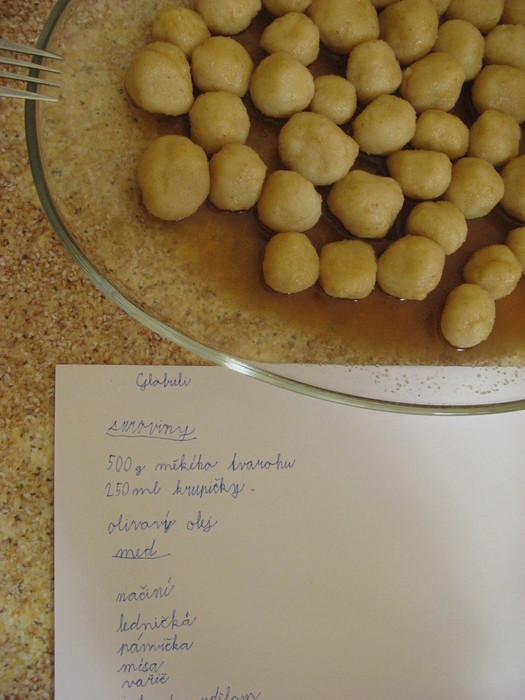 Globuli
suroviny
500 g měkého tvarohu
250 ml krupičky.
olivavý olej
med
načiní
lednička
pámička
mísa
vařič